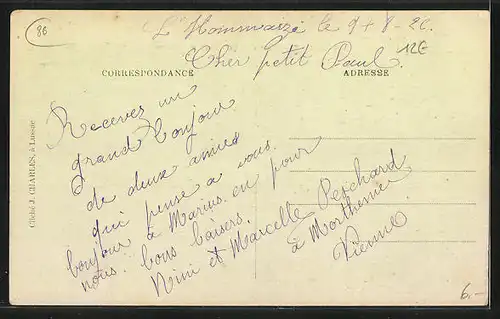 86
L'Hommaizé le 9+8-20
12E
Cher petit Paul.
CORRESPONDANCE
ADRESSE
Recevez un
grand bonjour
de deux amies
qui pense a vous.
bonjour à Marius. en pour
nous. bons baisers.
Nini et Marcelle Perchard
à Morthemer
Vienne
Cliché J. CHARLES, à Lussac
6.-